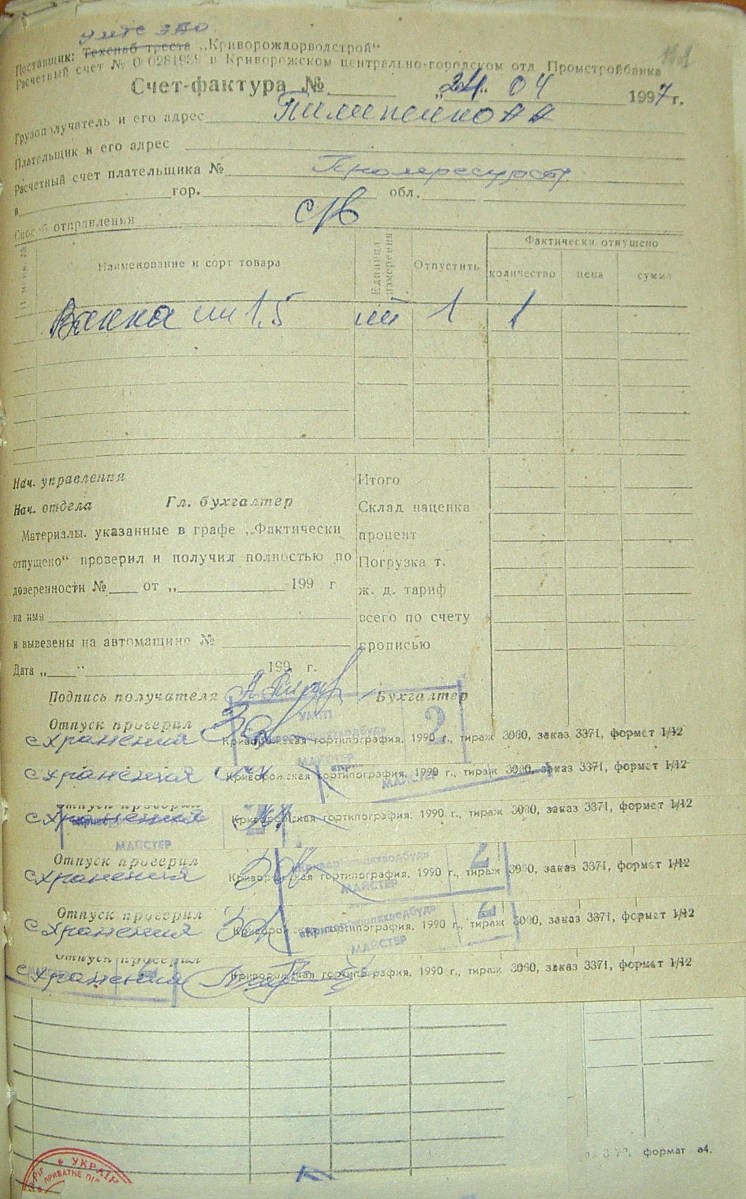 Поставщик: Техснаб треста „Криворождорводстрой“
Расчетный счет № 000281939 в Криворожском центрально-городском отд Промстройбанка
Счет-фактура № „24“ 04 1997 г.
Грузополучатель и его адрес
Плательщик и его адрес
Расчетный счет плательщика №
в гор. обл.
Способ отправления с/в
Наименование и сорт товара
Единица измерения
Отпустить
Фактически отпущено
количество цена сумма
Ванна чи 1,5 шт 1 1
Нач. управления
Нач. отдела Гл. бухгалтер
Материалы, указанные в графе „Фактически
отпущено“ проверил и получил полностью по
доверенности № от „ 199 г
на имя
и вывезены на автомашине №
Дата „ “ 199 г.
Итого
Склад наценка
процент
Погрузка т.
ж. д. тариф
всего по счету
прописью
Подпись получателя Бухгалтер
Отпуск проверил
с хранения Криворожская гортипография, 1990 г., тираж 3000, заказ 3371, формат 1/12
с хранения Криворожская гортипография, 1990 г., тираж 3000, заказ 3371, формат 1/12
МАЙСТЕР
Отпуск проверил
с хранения Криворожская гортипография, 1990 г., тираж 3000, заказ 3371, формат 1/12
МАЙСТЕР
Отпуск проверил
с хранения Криворожская гортипография, 1990 г., тираж 3000, заказ 3371, формат 1/12
МАЙСТЕР
Отпуск проверил
с хранения Криворожская гортипография, 1990 г., тираж 3000, заказ 3371, формат 1/12
МАЙСТЕР
Отпуск проверил
с хранения Криворожская гортипография, 1990 г., тираж 3000, заказ 3371, формат 1/12
формат а4.
УКРАЇН
ПРИВАТНЕ ПІД